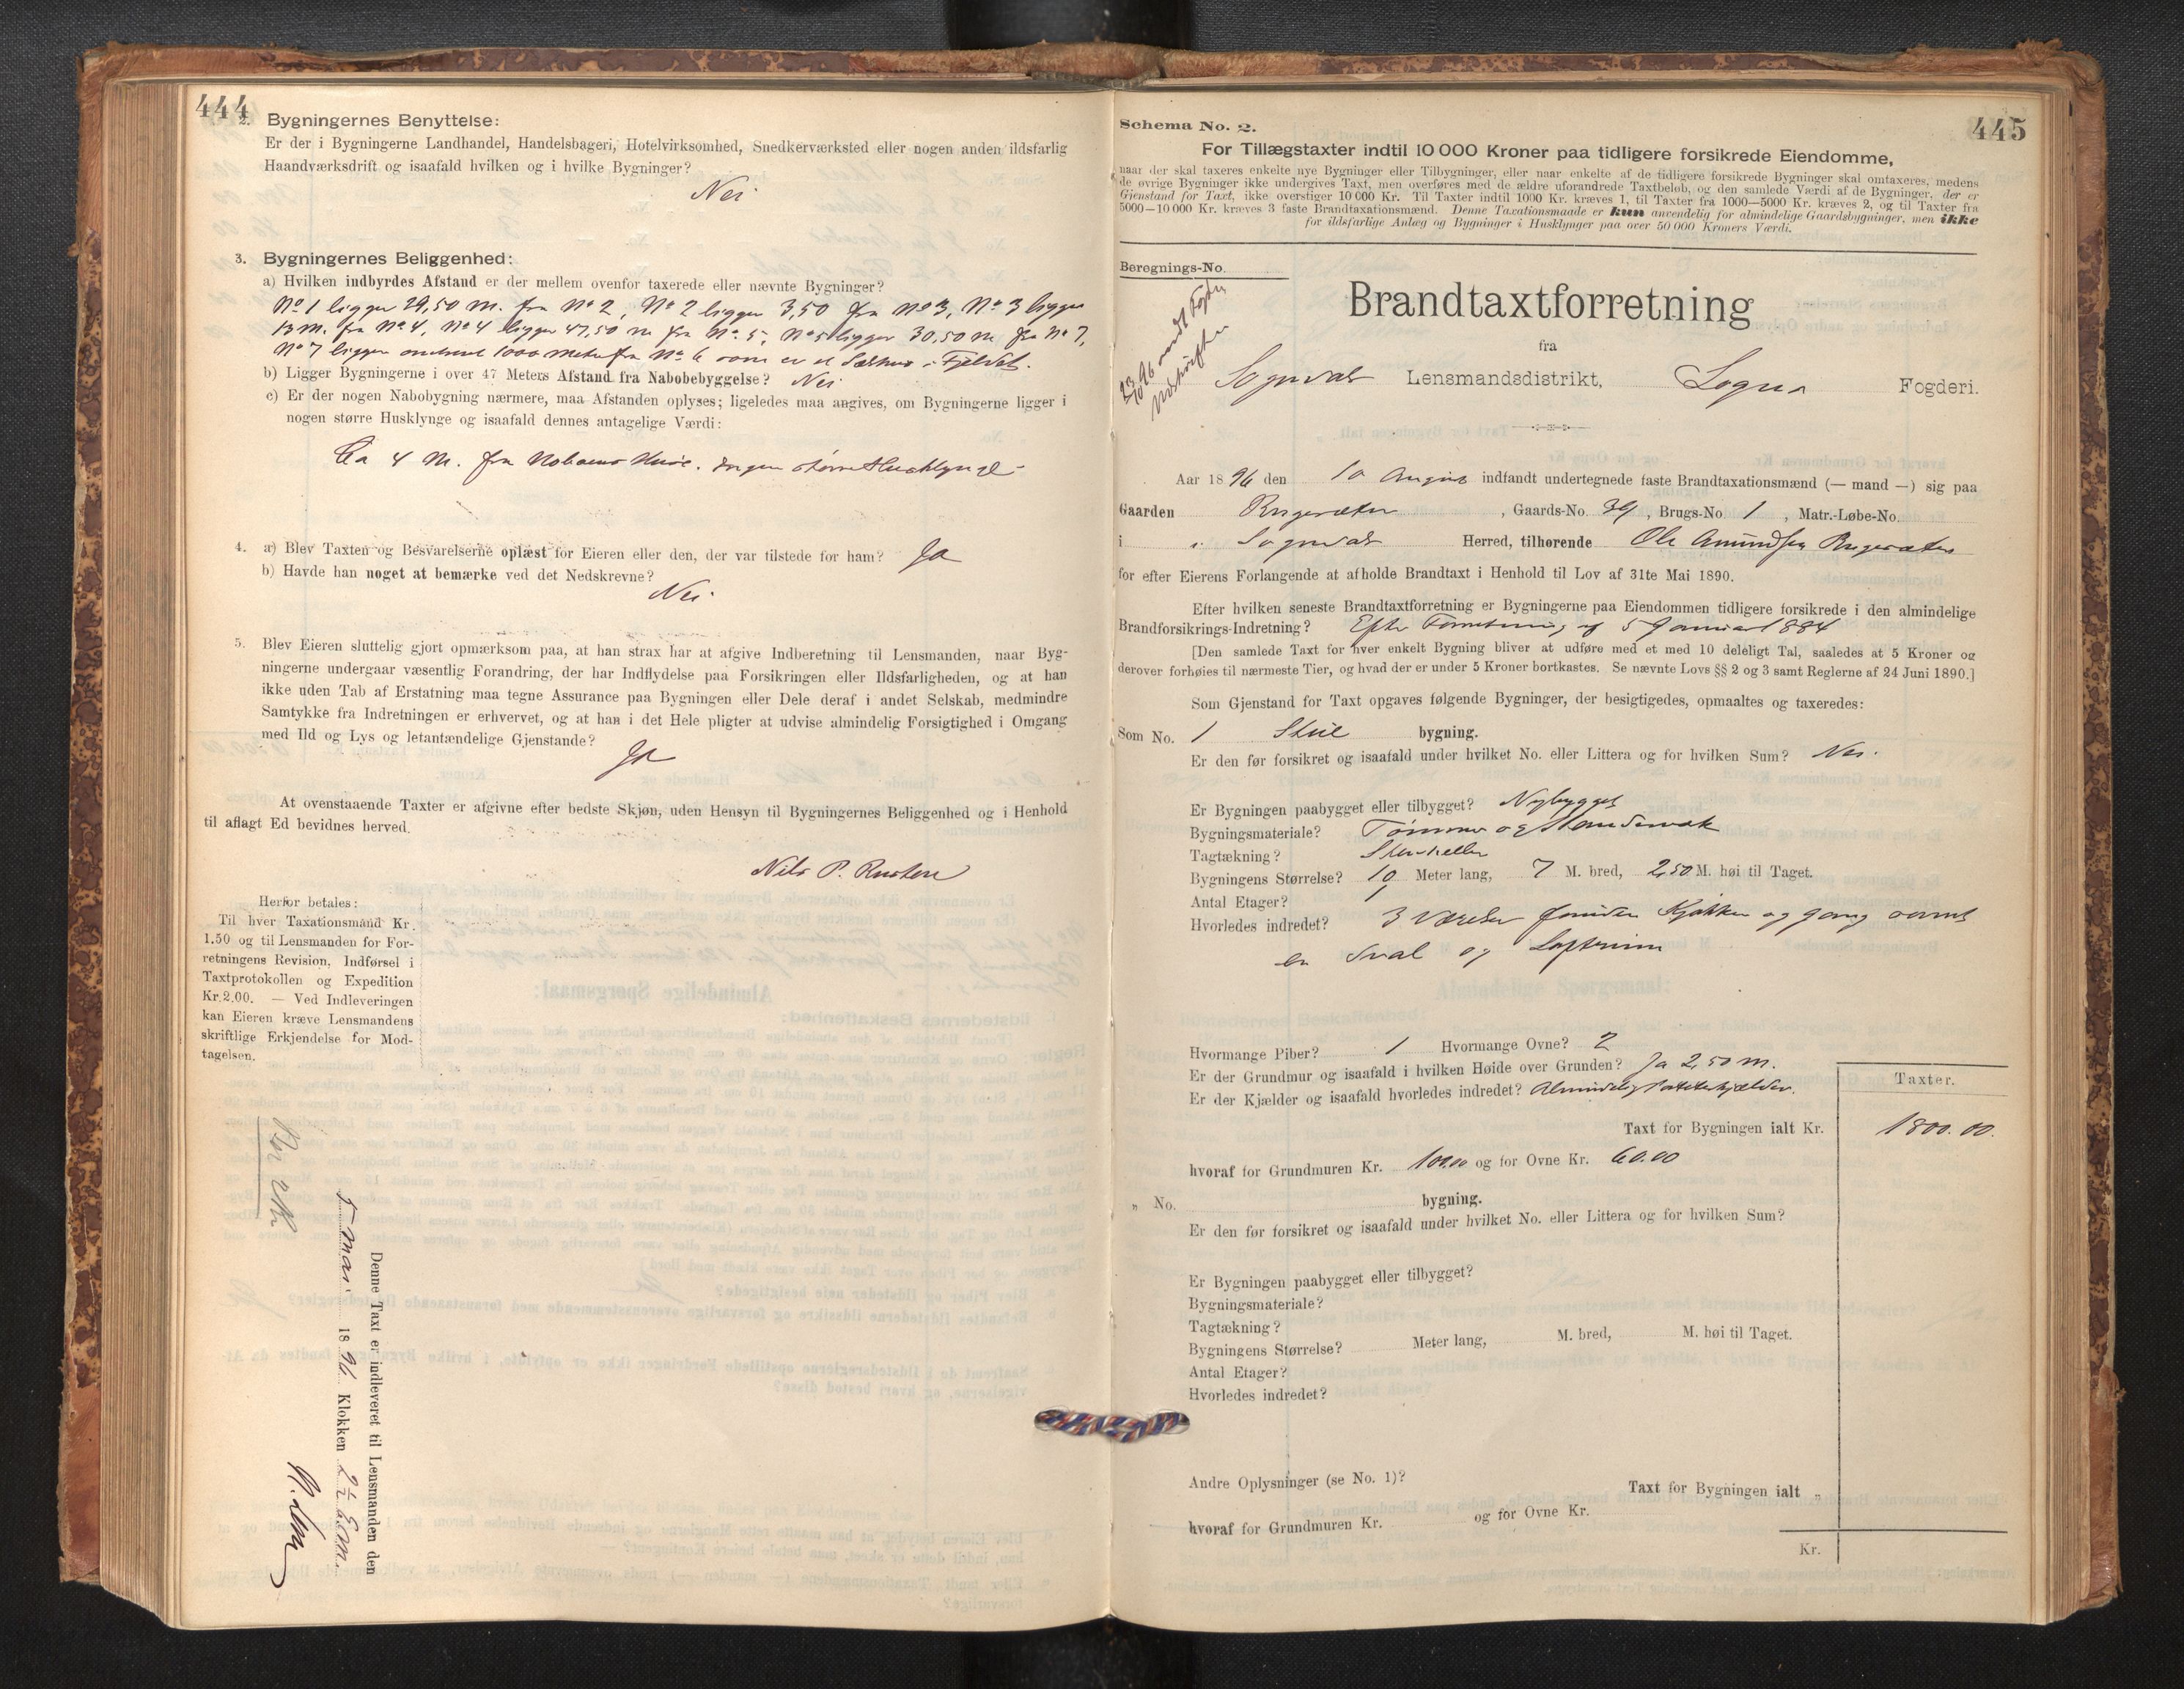 444
2. Bygningernes Benyttelse:
Er der i Bygningerne Landhandel, Handelsbageri, Hotelvirksomhed, Snedkerværksted eller nogen anden ildsfarlig
Haandværksdrift og isaafald hvilken og i hvilke Bygninger?
Nei
3. Bygningernes Beliggenhed:
a) Hvilken indbyrdes Afstand er der mellem ovenfor taxerede eller nævnte Bygninger?
No 1 ligger 29,50 M. fra No 2, No 2 ligger 3,50 fra No 3, No 3 ligger
13 m. fra No 4, No 4 ligger 47,50 m fra No 5, No 5 ligger 30,50 m fra No 7,
No 7 ligger omtrent 1000 meter fra No 6 som er et Sælhus i Fjeldet.
b) Ligger Bygningerne i over 47 Meters Afstand fra Nabobebyggelse? Nei
c) Er der nogen Nabobygning nærmere, maa Afstanden oplyses; ligeledes maa angives, om Bygningerne ligger i
nogen større Husklynge og isaafald dennes antagelige Værdi:
Ca 4 M. fra Naboens Huse. Ingen større Husklynge
4. a) Blev Taxten og Besvarelserne oplæst for Eieren eller den, der var tilstede for ham? Ja
b) Havde han noget at bemærke ved det Nedskrevne?
Nei
5. Blev Eieren sluttelig gjort opmærksom paa, at han strax har at afgive Indberetning til Lensmanden, naar Byg-
ningerne undergaar væsentlig Forandring, der har Indflydelse paa Forsikringen eller Ildsfarligheden, og at han
ikke uden Tab af Erstatning maa tegne Assurance paa Bygningen eller Dele deraf i andet Selskab, medmindre
Samtykke fra Indretningen er erhvervet, og at han i det Hele pligter at udvise almindelig Forsigtighed i Omgang
med Ild og Lys og letantændelige Gjenstande?
Ja
At ovenstaaende Taxter er afgivne efter bedste Skjøn, uden Hensyn til Bygningernes Beliggenhed og i Henhold
til aflagt Ed bevidnes herved.
Nils P.
Herfor betales:
Til hver Taxationsmand Kr.
1.50 og til Lensmanden for For-
retningens Revision, Indførsel i
Taxtprotokollen og Expedition
Kr. 2.00. — Ved Indleveringen
kan Eieren kræve Lensmandens
skriftlige Erkjendelse for Mod-
tagelsen.
Denne Taxt er indleveret til Lensmanden den
5 mai 1896 Klokken 2 1/2 Em.
445
Schema No. 2.
For Tillægstaxter indtil 10 000 Kroner paa tidligere forsikrede Eiendomme,
naar der skal taxeres enkelte nye Bygninger eller Tilbygninger, eller naar enkelte af de tidligere forsikrede Bygninger skal omtaxeres, medens
de øvrige Bygninger ikke undergives Taxt, men overføres med de ældre uforandrede Taxtbeløb, og den samlede Værdi af de Bygninger, der er
Gjenstand for Taxt, ikke overstiger 10 000 Kr. Til Taxter indtil 1000 Kr. kræves 1, til Taxter fra 1000—5000 Kr. kræves 2, og til Taxter fra
5000—10 000 Kr. kræves 3 faste Brandtaxationsmænd. Denne Taxationsmaade er kun anvendelig for almindelige Gaardsbygninger, men ikke
for ildsfarlige Anlæg og Bygninger i Husklynger paa over 50 000 Kroners Værdi.
Beregnings-No.
Brandtaxtforretning
fra
Sogndals Lensmandsdistrikt, Sogns Fogderi.
Aar 1896 den 10 August indfandt undertegnede faste Brandtaxationsmænd (— mand —) sig paa
Gaarden , Gaards-No. 39, Brugs-No. 1, Matr.-Løbe-No.
i Sogndals Herred, tilhørende Ole Amundsen
for efter Eierens Forlangende at afholde Brandtaxt i Henhold til Lov af 31te Mai 1890.
Efter hvilken seneste Brandtaxtforretning er Bygningerne paa Eiendommen tidligere forsikrede i den almindelige
Brandforsikrings-Indretning? Efter Forretning af 5 Januar 1884
[Den samlede Taxt for hver enkelt Bygning bliver at udføre med et med 10 deleligt Tal, saaledes at 5 Kroner og
derover forhøies til nærmeste Tier, og hvad der er under 5 Kroner bortkastes. Se nævnte Lovs §§ 2 og 3 samt Reglerne af 24 Juni 1890.]
Som Gjenstand for Taxt opgaves følgende Bygninger, der besigtigedes, opmaaltes og taxeredes:
Som No. 1 bygning.
Er den før forsikret og isaafald under hvilket No. eller Littera og for hvilken Sum? Nei.
Er Bygningen paabygget eller tilbygget? Nybygget
Bygningsmateriale? Tømmer og Standerverk
Tagtækning? Stenheller
Bygningens Størrelse? 10 Meter lang, 7 M. bred, 2,50 M. høi til Taget.
Antal Etager? 1
Hvorledes indredet? 3 Værelser foruden Kjøkken og Gang samt
en Sval og Loftsrum
Hvormange Piber? 1 Hvormange Ovne? 2
Er der Grundmur og isaafald i hvilken Høide over Grunden? Ja 2,50 m.
Er der Kjælder og isaafald hvorledes indredet? Almindelig Potetekjælder.
Taxter.
Taxt for Bygningen ialt Kr. 1800.00.
hvoraf for Grundmuren Kr. 100.00 og for Ovne Kr. 60.00
„ No. bygning.
Er den før forsikret og isaafald under hvilket No. eller Littera og for hvilken Sum?
Er Bygningen paabygget eller tilbygget?
Bygningsmateriale?
Tagtækning?
Bygningens Størrelse? Meter lang, M. bred, M. høi til Taget.
Antal Etager?
Hvorledes indredet?
Andre Oplysninger (se No. 1)?
Taxt for Bygningen ialt „
hvoraf for Grundmuren Kr. og for Ovne Kr.
Kr.